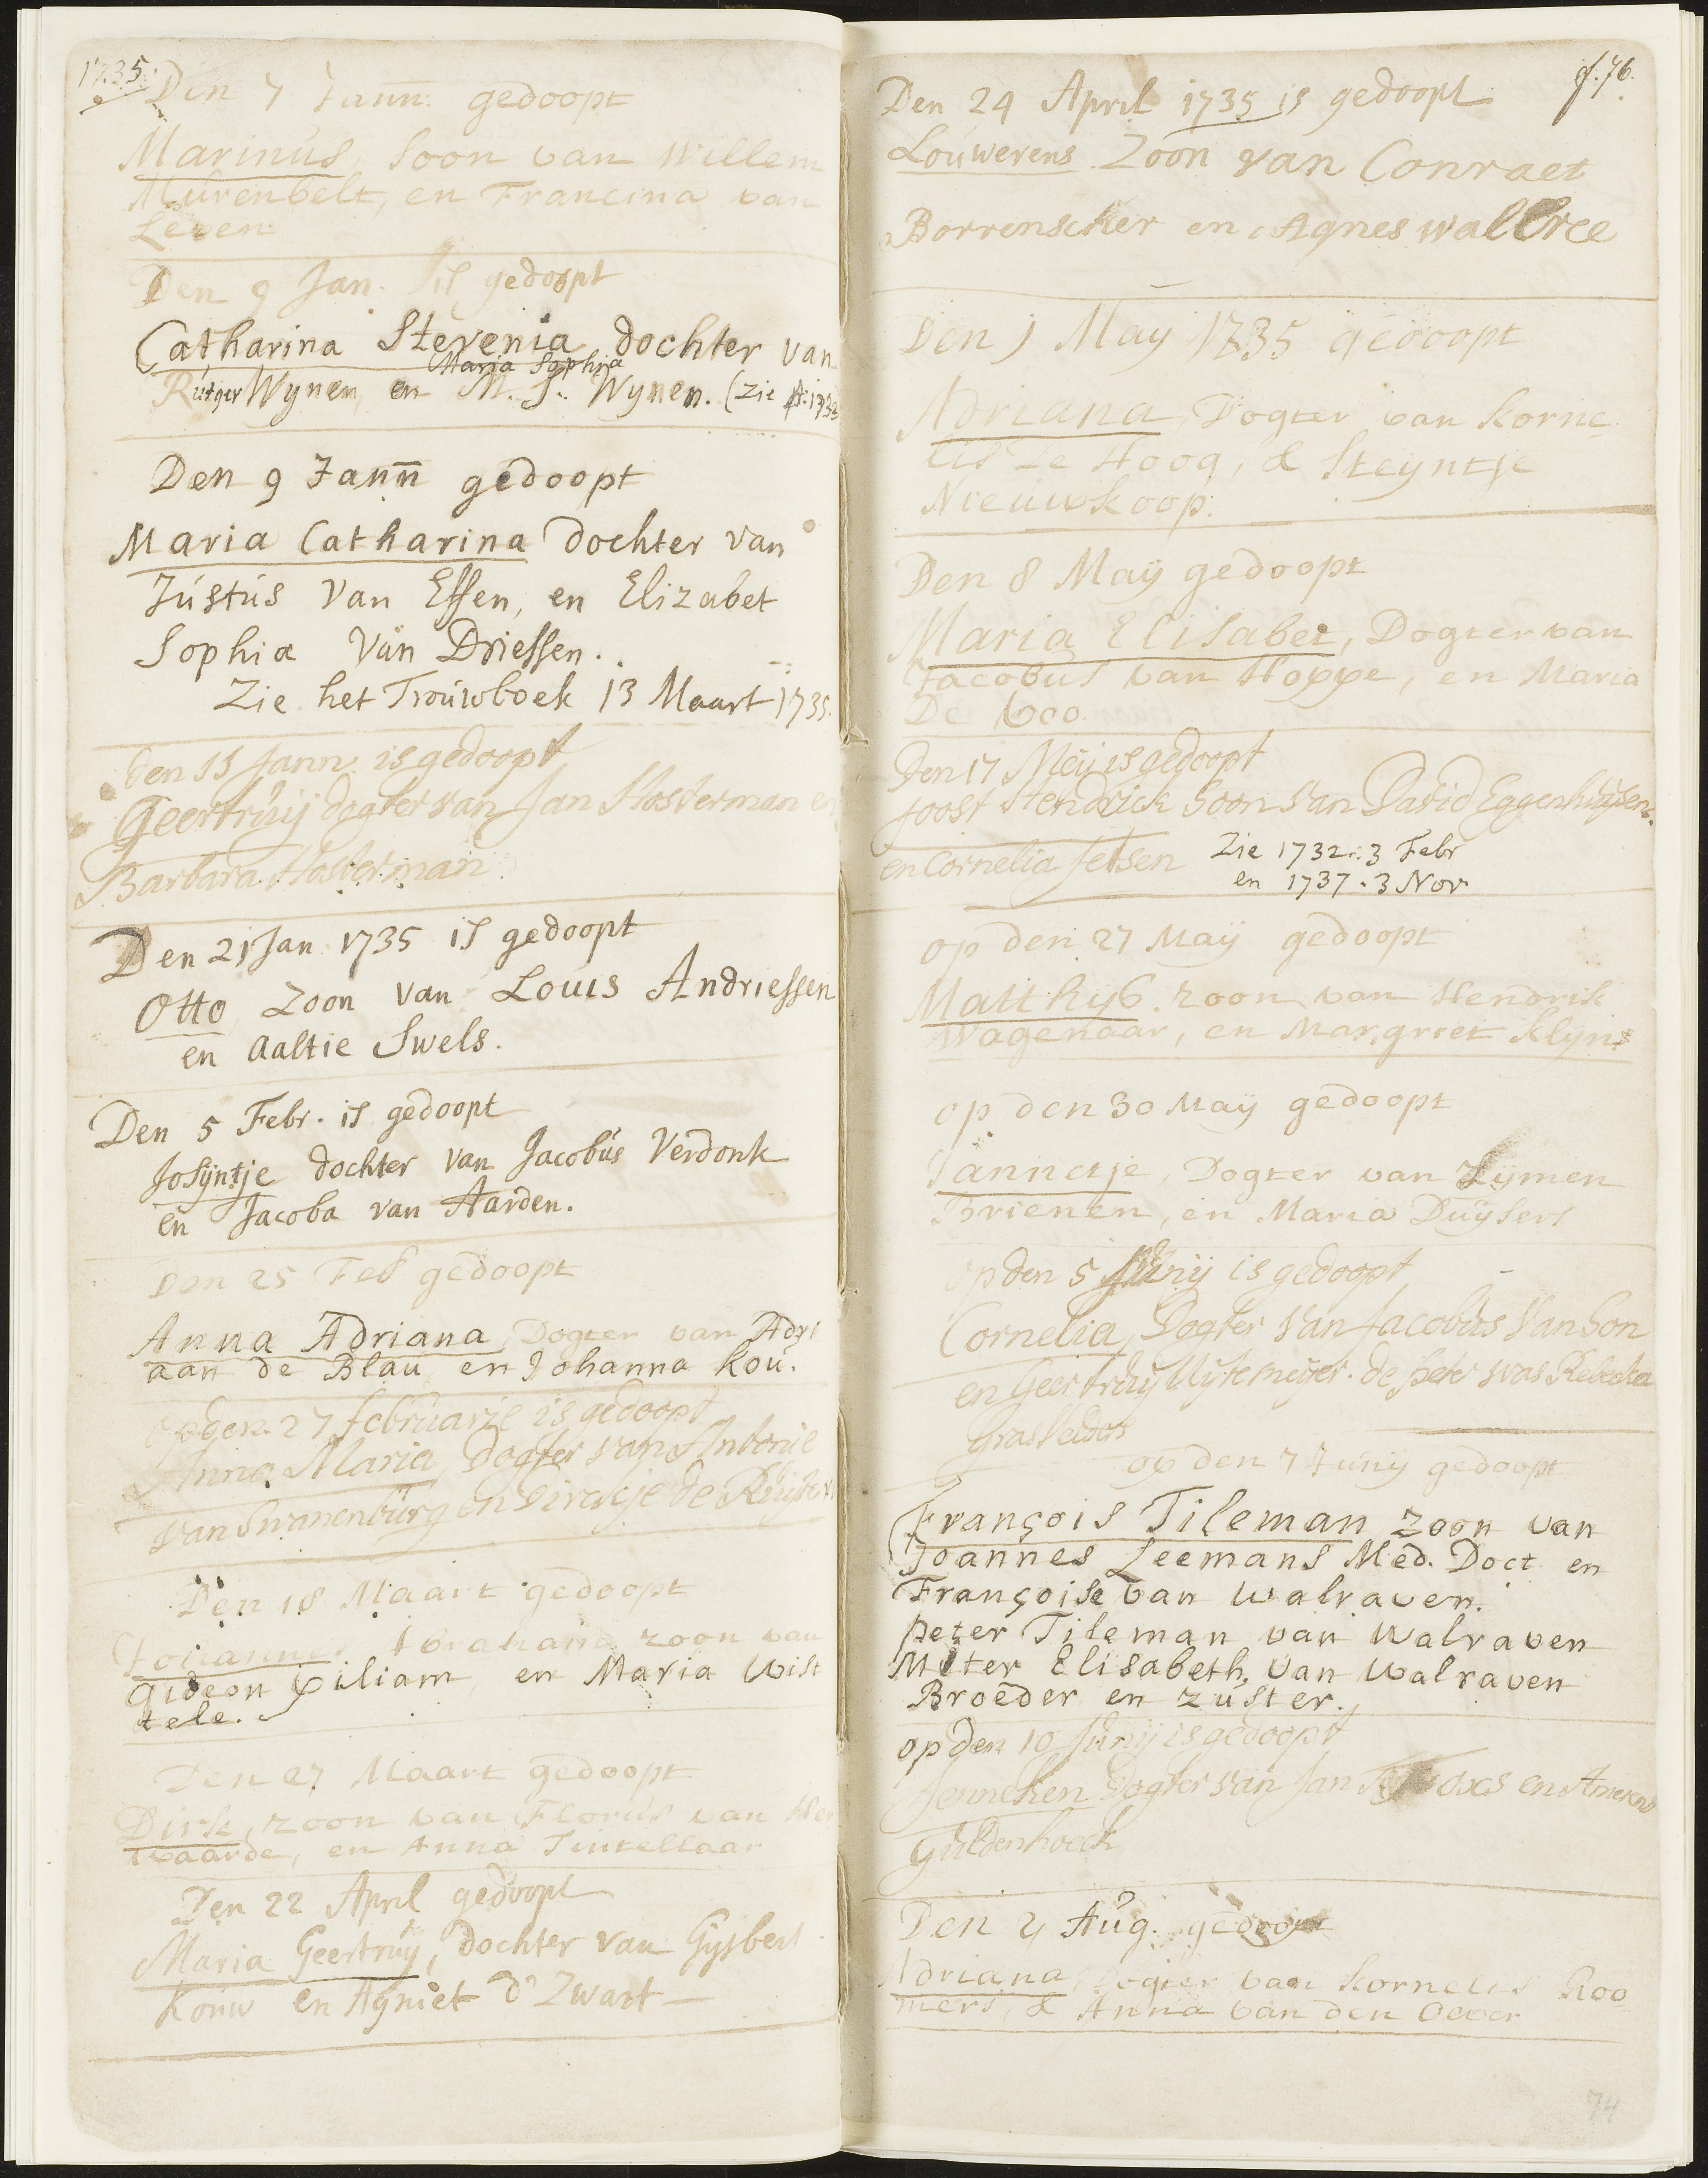 1735.
Den 7 Jann: gedoopt
Marinus, soon van Willem
Murenbelt, en Francina van
Leven.
Den 9 Jan. is gedoopt
Catharina Stevenia dochter van
Maria Sophia
Rutger Wynen, en M. S. Wynen. (zie
Den 9 Jann gedoopt
Maria Catharina dochter van
Justus Van Essen, en Elizabet
Sophia Van Driessen.
Zie het Trouwboek 13 Maart 1735.
den 15 Jann is gedoopt
Geertruij dogter van Jan Hosterman en
Barbara Hosterman
Den 21 Jan 1735 is gedoopt
Otto Zoon van Louis Andriessen
en Aaltie Swels.
Den 5 Febr. is gedoopt
Josijntje dochter van Jacobus Verdonk
en Jacoba van Aarden.
Den 25 Feb gedoopt
Anna Adriana, Dogter van Adri
aan de Blau en Johanna Kou.
Op den 27 februarie is gedoopt
Anna Maria Dogter van Antonie
van Swanenburg en Dirckje de Ruijter
Den 18 Maart gedoopt
Johannes Abraham zoon van
Gideon Piliam en Maria Wist
tele.
Den 27 Maart gedoopt
Dirk, zoon van Florus van Her
waarde, en Anna Tintellaar
Den 22 April gedoopt
Maria Geertruy, dochter van Gysbert
Kouw en Agniet d' Zwart —
f. 76.
Den 24 April 1735 is gedoopt
Louwerens Zoon van Conraet
Borrenscher en Agnes
Den 1 May 1735 gedoopt
Adriana, Dogter van Korne
lis De Hoog, & Steyntje
Nieuwkoop.
Den 8 Maij gedoopt
Maria Elisabet, Dogter van
Jacobus van Hoppe, en Maria
De Boo.
Den 17 Meij is gedoopt
Joost Hendrick Soon van David Eggenhuijsen.
en Cornelia Jetsen Zie 1732. 3 Febr
en 1737. 3 Nov
op den 27 Maij gedoopt
Matthijs zoon van Hendrik
Wagenaar, en Margriet Klijns
op den 30 Maij gedoopt
Jannetje, Dogter van Zymen
Brienen, en Maria Duijsers
op den 5 Junij is gedoopt
Cornelia, Dogter van Jacobus van Son
en Geertruij Uijtemeijer. de peter was Rebecka
Grasvelder
op den 7 Junij gedoopt
François Tileman zoon van
Joannes Leemans Med. Doct en
Françoise van Walraven.
Peter Tileman van Walraven
Meter Elisabeth van Walraven
Broeder en zuster.
op den 10 Junij is gedoopt
Jenneken Dogter van Jan en
Guldenhoeck
Den 21 Aug. gedoopt
Adriana, Dogter van Kornelis Roo
mers, & Anna van den Oever
74